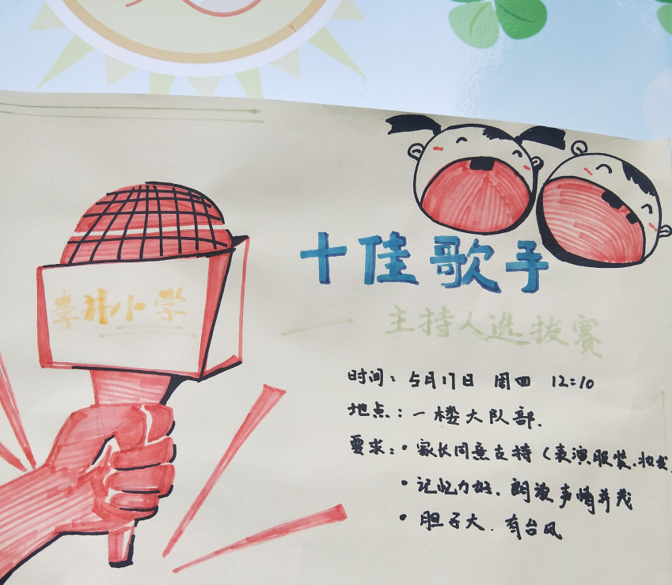 十佳歌手
李升小学
主持人选拔赛
时间：5月17日 周四 12:10
地点：一楼大队部.
要求：·家长同意支持（表演服装.
·记忆力好.朗读声情并茂
·胆子大.有台风